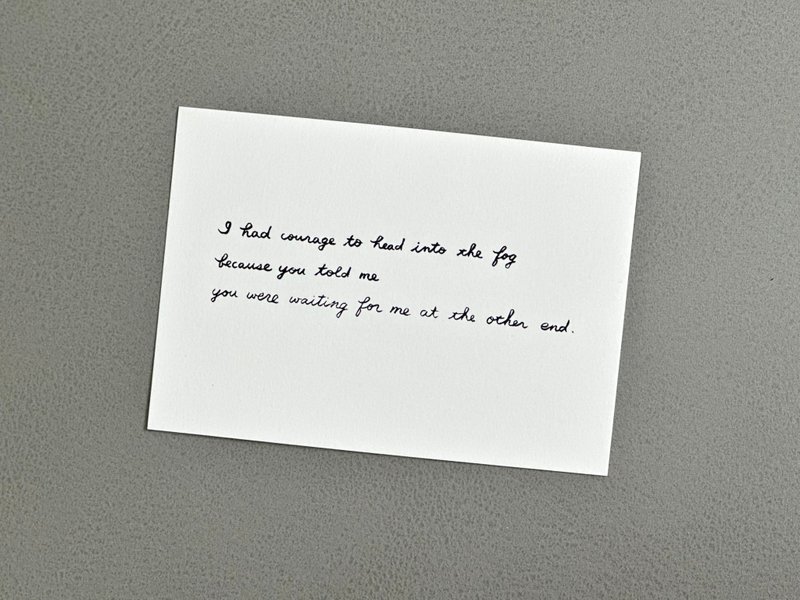 I had courage to head into the fog
because you told me
you were waiting for me at the other end.